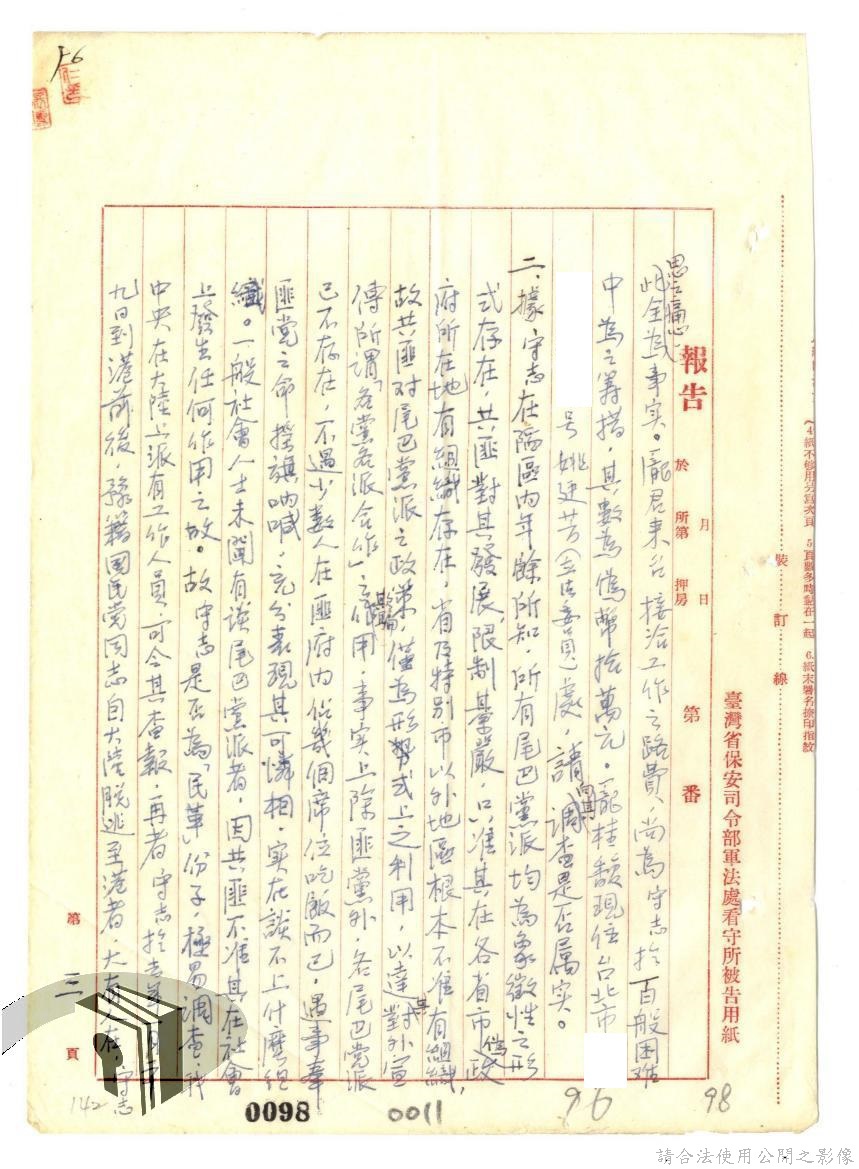 (4.紙不够用另寫次頁 5.頁數多時黏在一起 6.紙末署名捺印指紋
裝訂線
臺灣省保安司令部軍法處看守所被告用紙
報告 於 月 日 所第 押房 第 番
思之痛心
此全為事实。龐君来台接洽工作之路費,尚為守志於百般困难
中為之籌措,其數為偽幣拾萬元。龐桂馥現住台北市
号姚廷芳(立法委員)處,請向其調查是否属实。
二、據守志在陷區内年餘所知,所有尾巴黨派均為象徵性之形
式存在,共匪對其發展,限制綦嚴,只准其在各省市偽政
府所在地有組織存在,省及特别市以外地區根本不准有組織,
故共匪对尾巴黨派之政策,僅為形勢式上之利用,以達其對外宣
傳所謂「各黨各派合作」之作用,事实上除匪黨外,各尾巴党派
已不存在,不過少数人在匪府内佔幾個席位吃飯而已,遇事奉
匪党之命搖旗吶喊,充分表現其可憐相,实在談不上什麽組
織。一般社會人士未聞有談尾巴黨派者,因共匪不准其在社會
上發生任何作用之故。故守志是否為「民革」份子,極易調查,我
中央在大陸上派有工作人員,可令其查報,再者守志於去年月
九日到港前後,豫籍國民党同志自大陸脱逃至港者,大有人在,守志
第三頁
142
0098
0011
96
98
請合法使用公開之影像